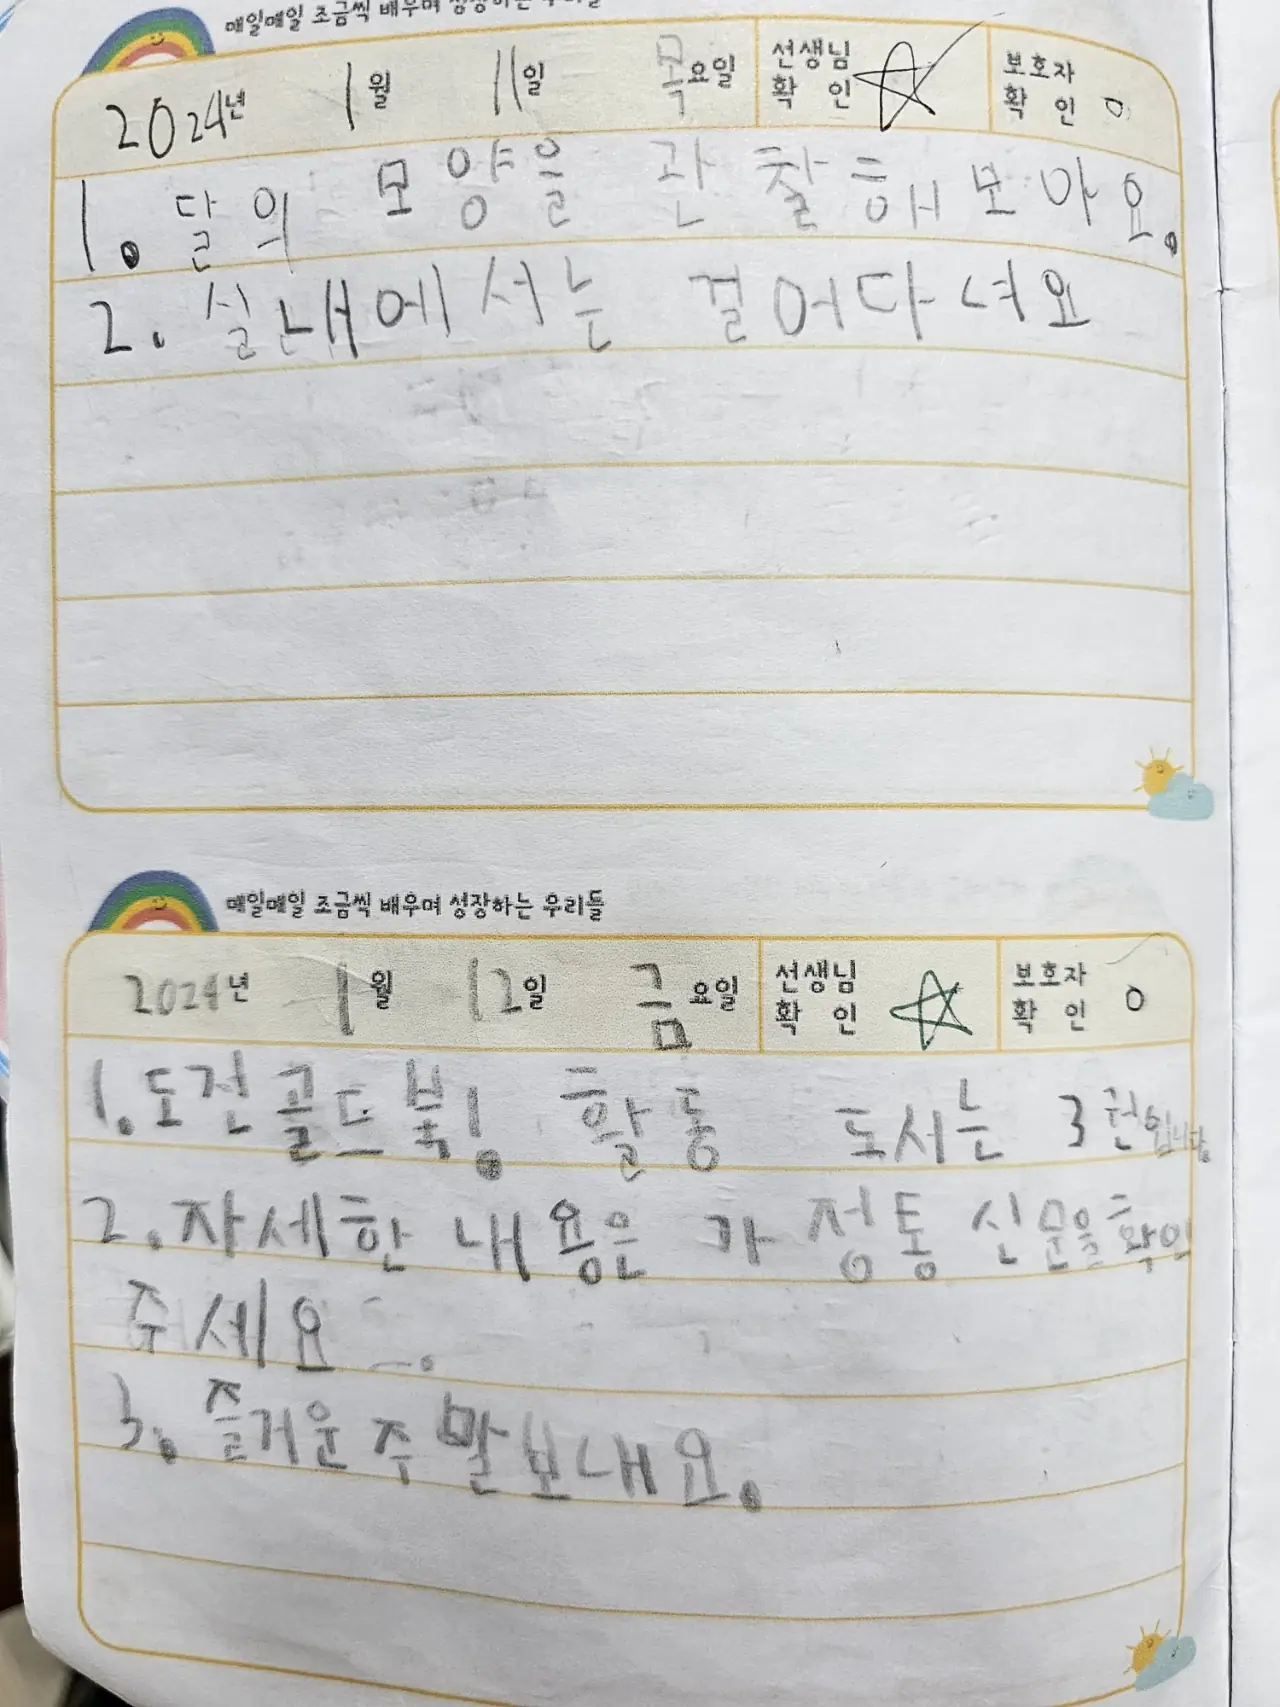 매일매일 조금씩 배우며 성장하는 우리들
2024년 1월 11일 목요일 선생님 확인 보호자 확인 o
1. 달의 모양을 관찰해보아요.
2. 실내에서는 걸어다녀요
매일매일 조금씩 배우며 성장하는 우리들
2024년 1월 12일 금요일 선생님 확인 보호자 확인 o
1. 도전골드북! 활동 도서는 3권입니다
2. 자세한 내용은 가정통신문을확인
주세요.
3. 즐거운주말보내요.